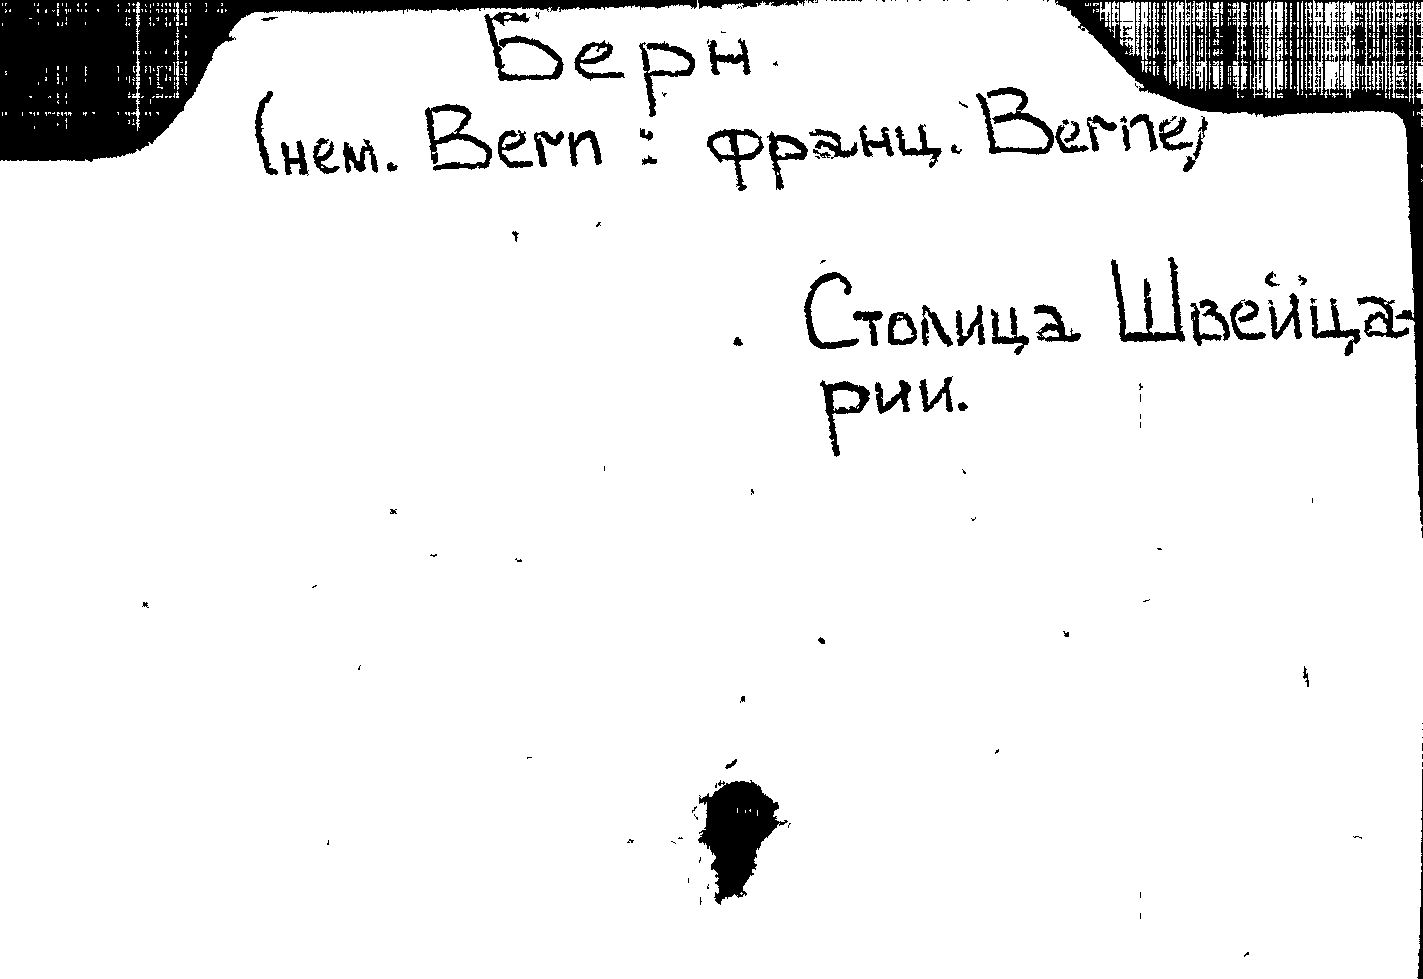 Берн.
(нем. Bern : франц. Berne)
Столица Швейца-
рии.